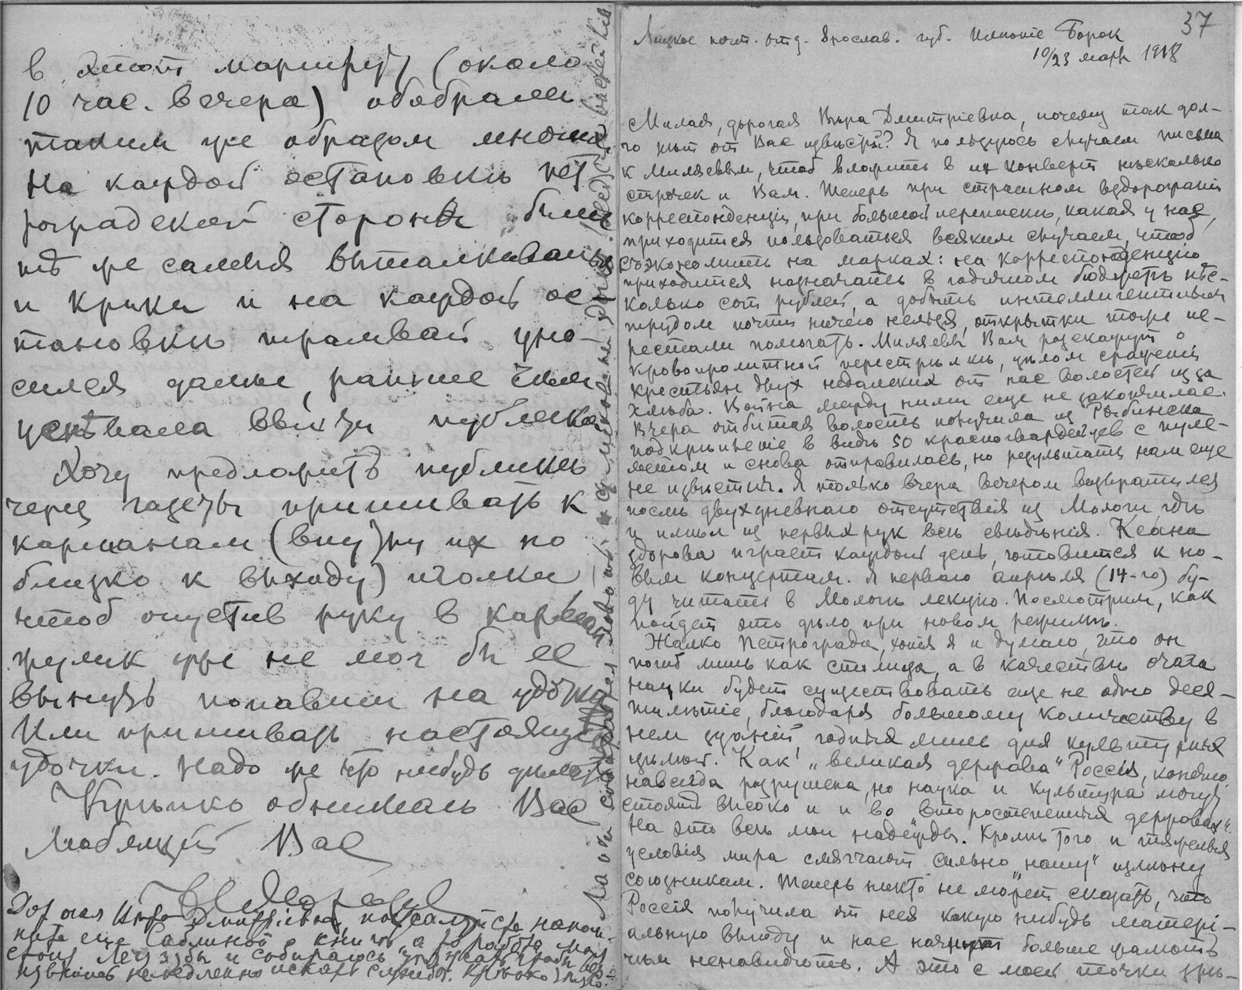 в этот маршрут (около
10 час. вечера) обобрали
таким же образом многих
На каждой остановкѣ пет
роградской стороны были
тѣ же самыя выталкиванья
и крики и на каждой ос
тановки трамвай уно-
сился далѣе, раньше чѣм
успѣвала выйти публика
Хочу предложить публикѣ
через газеты пришивать к
карманам (внутри их по
близко к выходу) иголки
чтоб опустив руку в карман
жулик уже не мог бы ее
вынуть попавши на удочку
Или пришивать настоящія
удочки. Надо же что нибудь дѣлать
Крѣпко обнимаю Вас
Любящій Вас
Дорогая Дмитріевна, пожалуйста напом-
ните еще Саблиной о книгѣ, а то
и собираюсь
немедленно искать службы. Крѣпко
37
Лацкое почт. отд. Ярослав. губ. имѣніе Борок
10/23 март 1918
Милая, дорогая Вѣра Дмитріевна, почему так дол-
го нѣт от Вас извѣстій? Я пользуюсь случаем письма
к Миляевым, чтоб вложить в их конверт нѣсколько
строчек и Вам. Теперь при страшном вздорожаніи
корреспонденціи, при большой перепискѣ, какая у нас,
приходится пользоваться всяким случаем, чтоб
съэкономить на марках: на корреспонденцію
приходится назначать в годичном бюджетѣ нѣс-
колько сот рублей, а добыть интеллигентным
трудом почти ничего нельзя, открытки тоже пе-
рестали помогать. Миляевы Вам разскажут о
кровопролитной перестрѣлкѣ, цѣлом сраженіи
крестьян двух недалеких от нас волостей из за
хлѣба. Война между ними еще не закончилась.
Вчера отбитая волость получила из Рыбинска
подкрѣпленіе в видѣ 50 красногвардейцев с пуле-
метом и снова отправилась, но результаты нам еще
не извѣстны. Я только вчера вечером возвратился
послѣ двухдневного отсутствія из Мологи гдѣ
и имѣл из первых рук всѣ свѣдѣнія. Ксана
здорова играет каждый день, готовится к но-
вым концертам. Я перваго апрѣля (14-го) бу-
ду читать в Мологѣ лекцію. Посмотрим, как
пойдет это дѣло при новом режимѣ.
Жалко Петрограда, хотя я и думаю, что он
погиб лишь как столица, а в качествѣ очага
науки будет существовать еще не одно деся-
тилѣтіе, благодаря большому количеству в
нем зданій, годных лишь для культурных
цѣлей. Как „великая держава" Россія, конечно,
навсегда разрушена, но наука и культура могут
стоять высоко и и во второстепенных державах.
На это всѣ мои надежды. Кромѣ того и тяжелыя
условія мира смягчают сильно „нашу" измѣну
союзникам. Теперь никто не может сказать, что
Россія получила от нея какую нибудь матері-
альную выгоду и нас начнут больше жалѣть
чѣм ненавидѣть. А это с моей точки зрѣ-